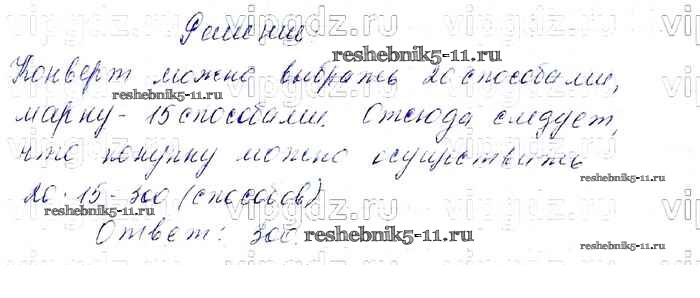 vipgdz.ru vipgdz.ru vipgdz.ru
Решение
reshebnik5-11.ru
Конверт можно выбрать 20 способами,
reshebnik5-11.ru
марку - 15 способами. Отсюда следует,
что покупку можно осуществить
reshebnik5-11.ru
20 · 15 = 300 (способов)
vipgdz.ru vipgdz.ru vipgdz.ru
Ответ: 300
reshebnik5-11.ru
reshebnik5-11.ru